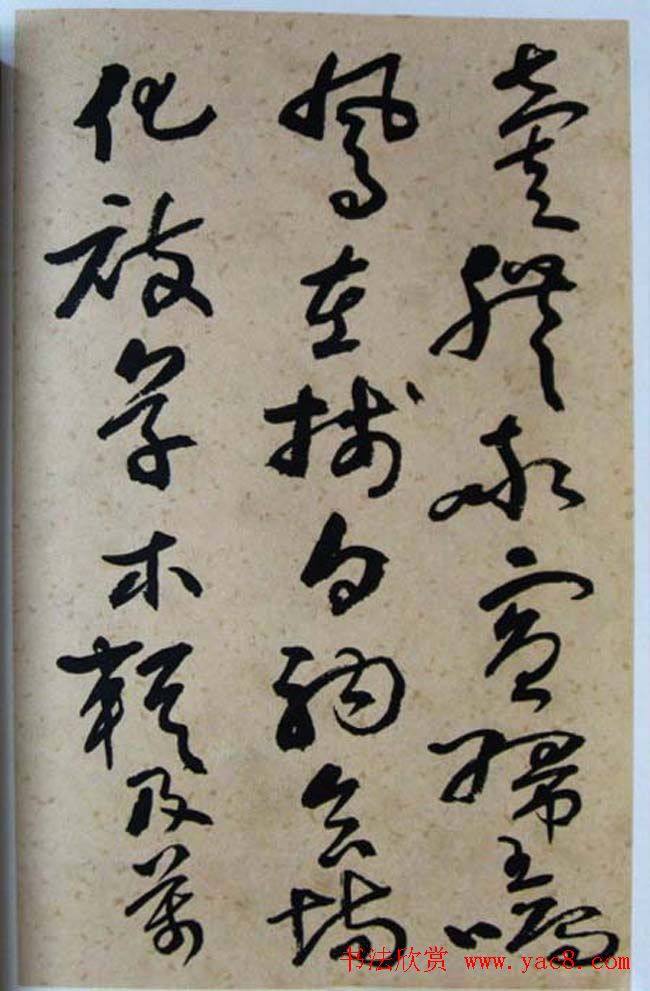 壹體率賓歸王鳴
鳳在樹白駒食場
化被草木賴及萬
书法欣赏 www.yac8.com